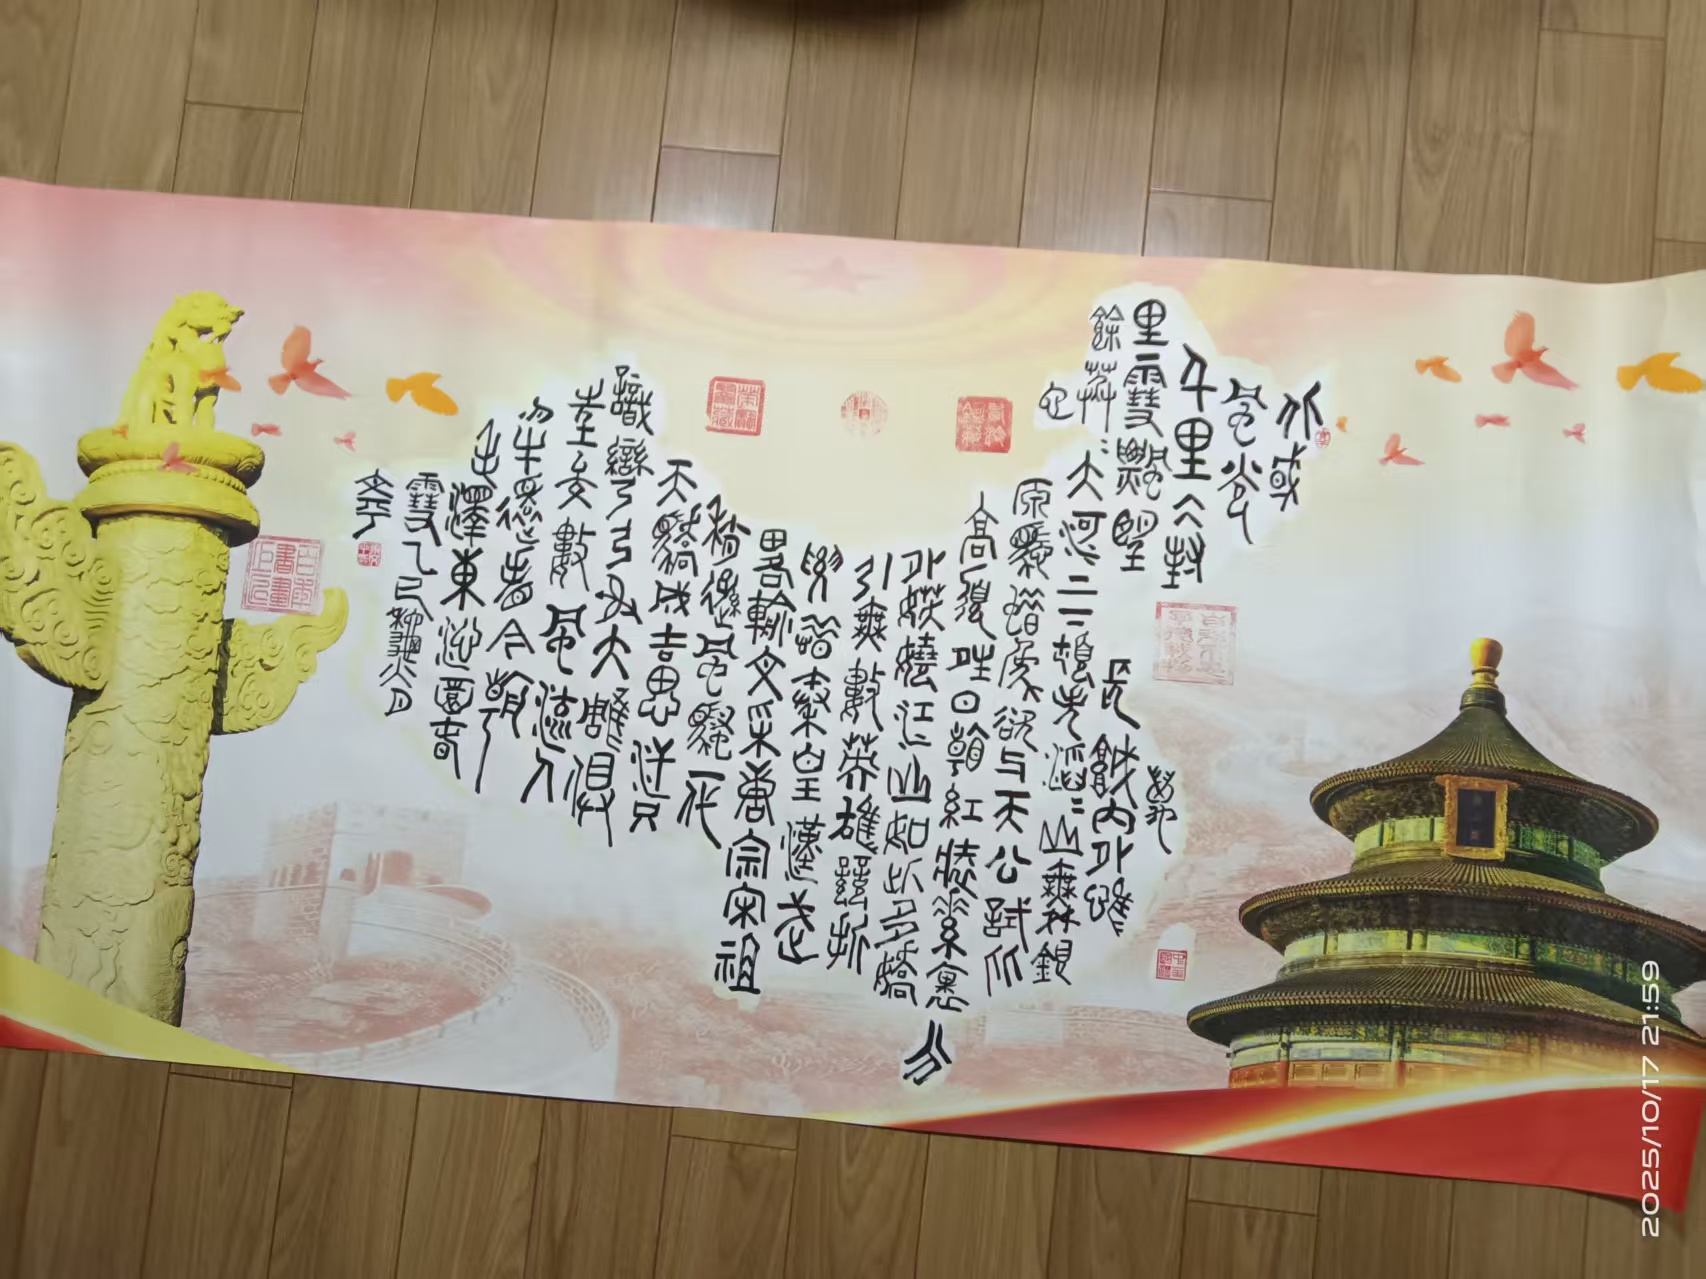 北或
風光
千里仌封
萬
里雪飄朢
長城內外惟
餘莽=
大河上下頓失滔=山舞銀
它
原馳蠟象欲與天公試比
高須晴日看紅裝素裹
分
外妖嬈江山如此多嬌
引無數英雄競折
腰惜秦皇漢武
略輸文采唐宗宋祖
稍遜風騷一代
天驕成吉思汗只
識彎弓射大雕俱
往矣數風流人
物還看今朝
毛澤東沁園春
雪乙巳
2025/10/17 21:59